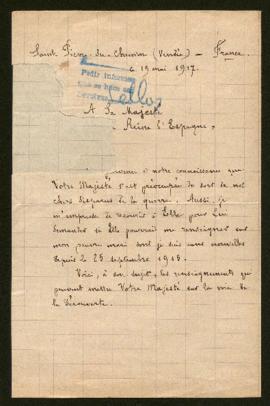 Saint Pierre-du-Chemin (Vendée) - France
le 19 mai 1917.
Pedir informes
A Sa Majesté
Reine d'Espagne.
à notre connaissance que
Votre Majesté s'est préoccupée du sort de nos
chers disparus de la guerre. Aussi, je
m'empresse de recourir à Elle pour Lui
demander si Elle pourrait me renseigner sur
mon pauvre mari dont je suis sans nouvelles
depuis le 25 septembre 1915.
Voici, à son sujet, les renseignements qui
peuvent mettre Votre Majesté sur la voie de
la découverte.